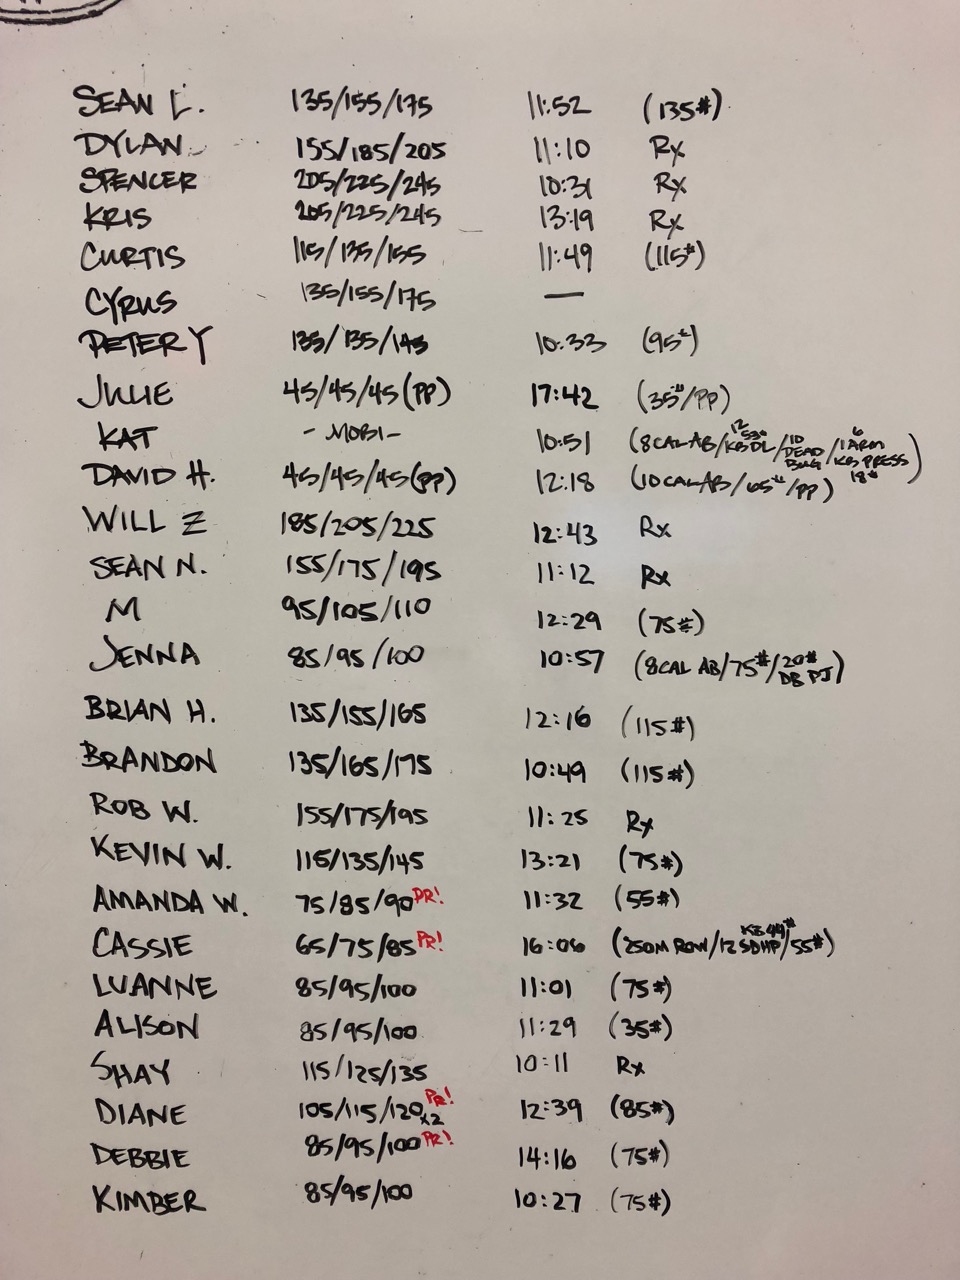 SEAN L. 135/155/175 11:52 (135#)
DYLAN 155/185/205 11:10 Rx
SPENCER 205/225/245 10:31 Rx
KRIS 205/225/245 13:19 Rx
CURTIS 115/135/155 11:49 (115#)
CYRUS 135/155/175 —
PETER Y 135/135/145 10:33 (95#)
JULIE 45/45/45(PP) 17:42 (35#/PP)
KAT - MOBI - 10:51 (8 CAL AB/12 53# KB DL/10 DEAD BUG/6 1 ARM KB PRESS 18#)
DAVID H. 45/45/45(PP) 12:18 (10 CAL AB/65#/PP)
WILL Z 185/205/225 12:43 Rx
SEAN N. 155/175/195 11:12 Rx
M 95/105/110 12:29 (75#)
JENNA 85/95/100 10:57 (8 CAL AB/75#/20# DB PJ)
BRIAN H. 135/155/165 12:16 (115#)
BRANDON 135/165/175 10:49 (115#)
ROB W. 155/175/195 11:25 Rx
KEVIN W. 115/135/145 13:21 (75#)
AMANDA W. 75/85/90 PR! 11:32 (55#)
CASSIE 65/75/85 PR! 16:06 (250M ROW/12 KB 44# SDHP/55#)
LUANNE 85/95/100 11:01 (75#)
ALISON 85/95/100 11:29 (35#)
SHAY 115/125/135 10:11 Rx
DIANE 105/115/120 x2 PR! 12:39 (85#)
DEBBIE 85/95/100 PR! 14:16 (75#)
KIMBER 85/95/100 10:27 (75#)